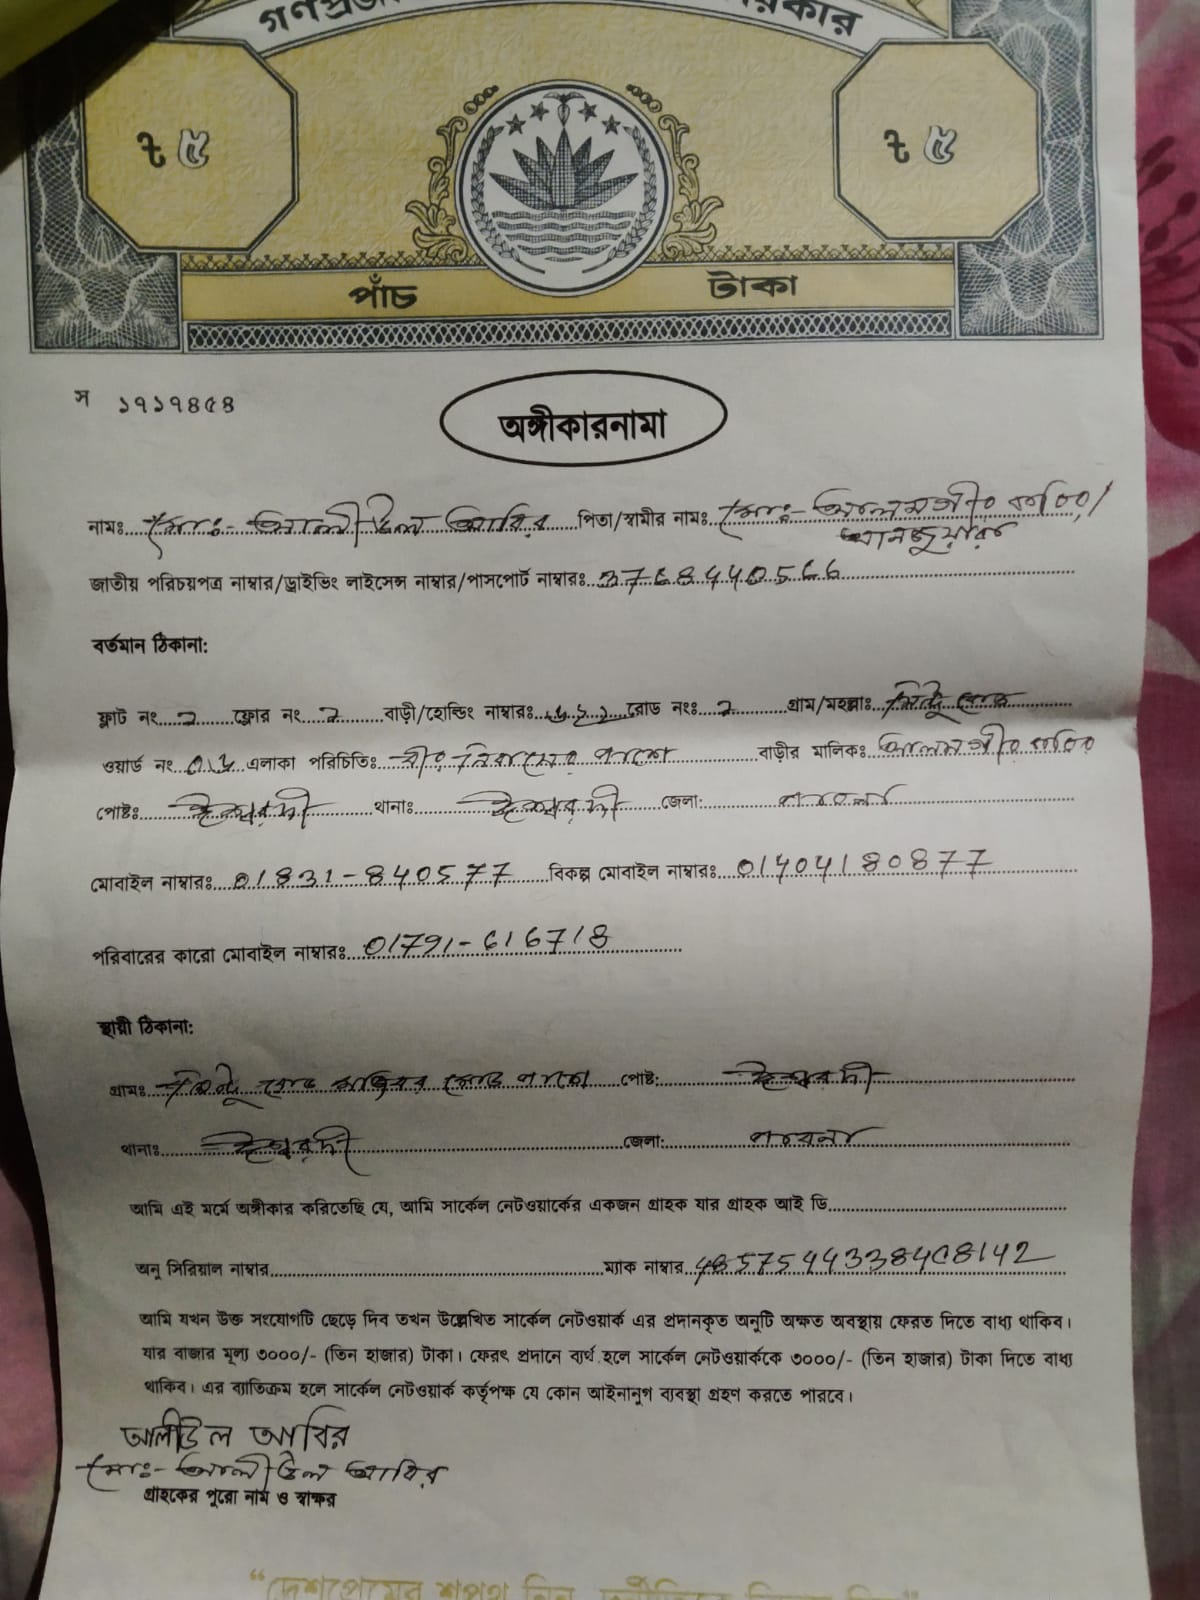 গণপ্রজা
রকার
৳ ৫
৳ ৫
পাঁচ টাকা
স ১৭১৭৪৫৪
অঙ্গীকারনামা
নামঃ মোঃ- আলীউল আবির পিতা/স্বামীর নামঃ মোঃ- আলমগীর কবির/
আনজুয়ারা
জাতীয় পরিচয়পত্র নাম্বার/ড্রাইভিং লাইসেন্স নাম্বার/পাসপোর্ট নাম্বারঃ 3768440566
বর্তমান ঠিকানা:
ফ্লাট নং 2 ফ্লোর নং 2 বাড়ী/হোল্ডিং নাম্বারঃ রোড নং 2 গ্রাম/মহল্লাঃ পিন্টু রোড
ওয়ার্ড নং এলাকা পরিচিতিঃ বাড়ীর মালিক: আলমগীর কবির
পোষ্টঃ ঈশ্বরদী থানাঃ ঈশ্বরদী জেলা: পাবনা
মোবাইল নাম্বারঃ 01831-840577 বিকল্প মোবাইল নাম্বারঃ 01404180877
পরিবারের কারো মোবাইল নাম্বারঃ 01791-616718
স্থায়ী ঠিকানা:
গ্রামঃ পিন্টু রোড রোড পাড়া পোষ্ট: ঈশ্বরদী
থানাঃ ঈশ্বরদী জেলা: পাবনা
আমি এই মর্মে অঙ্গীকার করিতেছি যে, আমি সার্কেল নেটওয়ার্কের একজন গ্রাহক যার গ্রাহক আই ডি
অনু সিরিয়াল নাম্বার ম্যাক নাম্বার
আমি যখন উক্ত সংযোগটি ছেড়ে দিব তখন উল্লেখিত সার্কেল নেটওয়ার্ক এর প্রদানকৃত অনুটি অক্ষত অবস্থায় ফেরত দিতে বাধ্য থাকিব।
যার বাজার মূল্য ৩০০০/- (তিন হাজার) টাকা। ফেরৎ প্রদানে ব্যর্থ হলে সার্কেল নেটওয়ার্ককে ৩০০০/- (তিন হাজার) টাকা দিতে বাধ্য
থাকিব। এর ব্যতিক্রম হলে সার্কেল নেটওয়ার্ক কর্তৃপক্ষ যে কোন আইনানুগ ব্যবস্থা গ্রহণ করতে পারবে।
আলীউল আবির
মোঃ- আলীউল আবির
গ্রাহকের পুরো নাম ও স্বাক্ষর
“দেশপ্রেমের শপথ নিন,